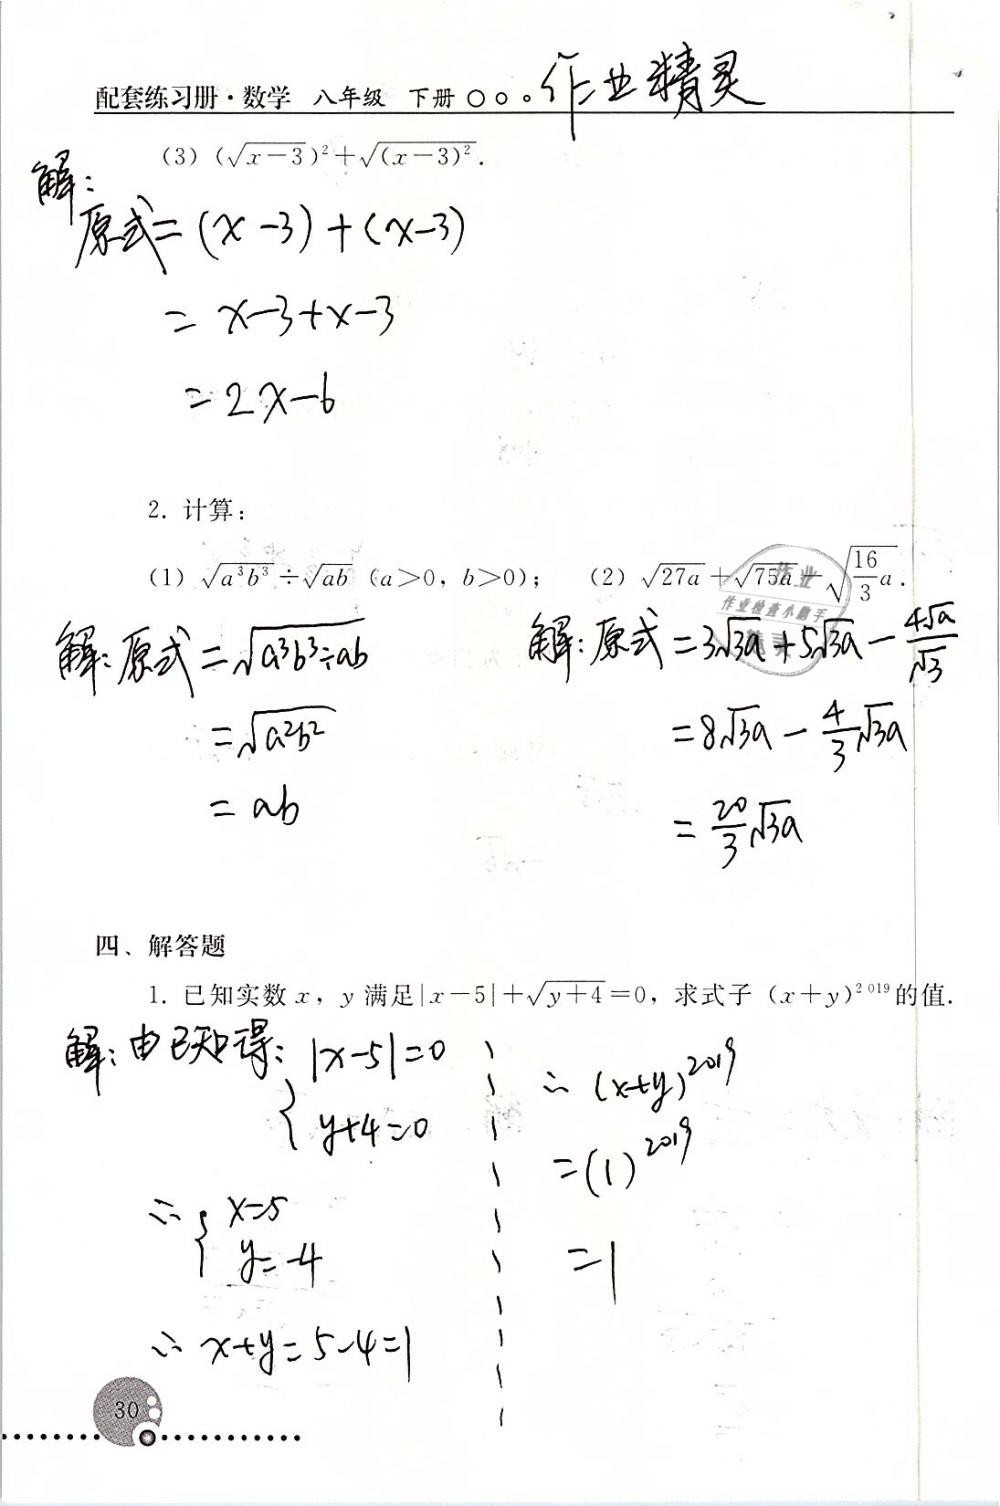 配套练习册·数学 八年级 下册 作业精灵
(3) (√(x-3))²+√((x-3)²).
解:
原式=(x-3)+(x-3)
=x-3+x-3
=2x-6
2. 计算:
(1) √(a³b³)÷√(ab) (a>0, b>0); (2) √(27a)+√(75a)-√(16/3 a).
作业
作业检查小助手
精灵
解:原式=√(a³b³÷ab)
=√(a²b²)
=ab
解:原式=3√(3a)+5√(3a)-4√a/√3
=8√(3a)-4/3√(3a)
=20/3√(3a)
四、解答题
1. 已知实数 x, y 满足|x-5|+√(y+4)=0, 求式子 (x+y)²⁰¹⁹的值.
解:由已知得: {|x-5|=0
y+4=0
∴ {x=5
y=-4
∴ x+y=5-4=1
∴ (x+y)²⁰¹⁹
=(1)²⁰¹⁹
=1
30